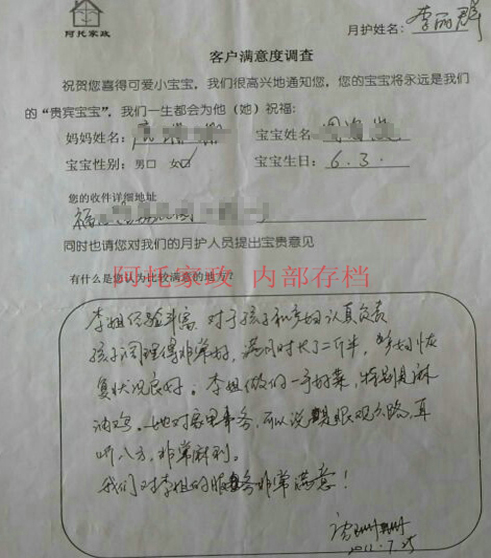 阿托家政
月护姓名:李丽群
客户满意度调查
祝贺您喜得可爱小宝宝,我们很高兴地通知您,您的宝宝将永远是我们
的“贵宾宝宝”,我们一生都会为他(她)祝福:
妈妈姓名: 宝宝姓名
宝宝性别:男口 女口 宝宝生日:6.3.
您的收件详细地址
福
同时也请您对我们的月护人员提出宝贵意见
阿托家政 内部存档
有什么是您认为比较满意的地方?
李姐经验丰富,对于孩子和产妇认真负责
孩子调理得非常好,满月时长了二斤半,产妇恢
复状况良好。李姐做的一手好菜,特别是麻
油鸡。她对家里事务,可以说眼观六路,耳
听八方,非常麻利。
我们对李姐的服务非常满意!
7.25